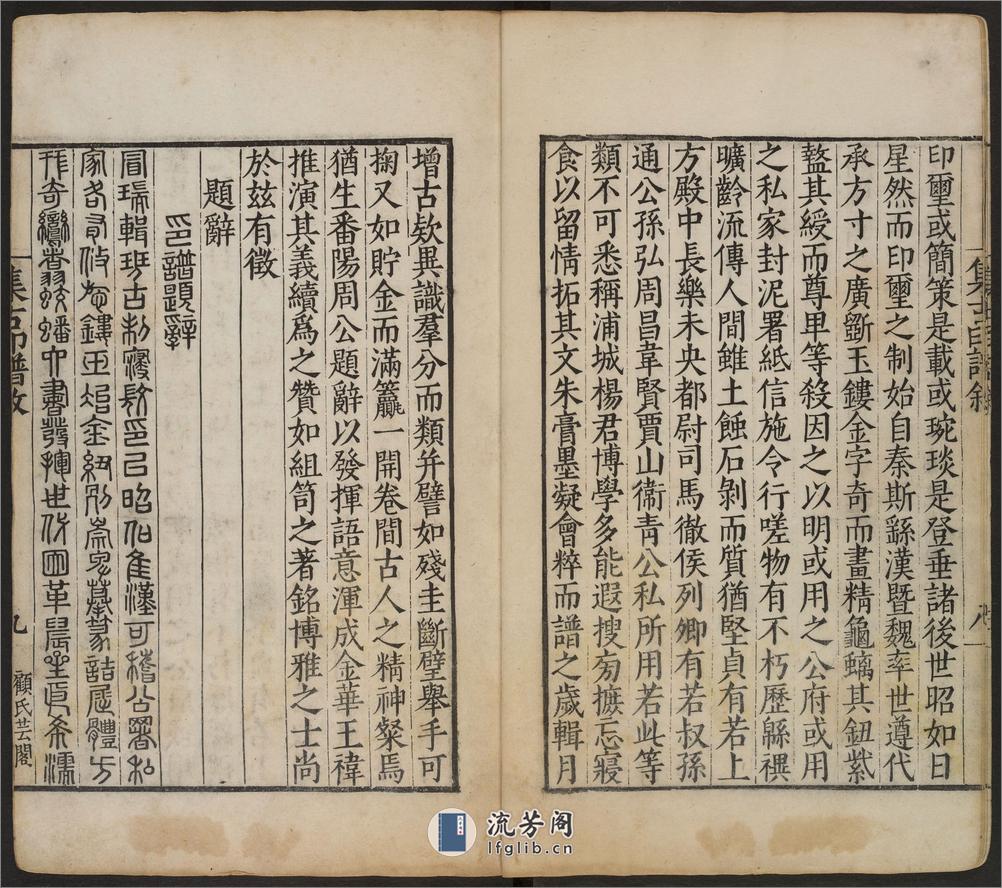 印璽或簡策是載或琬琰是登垂諸後世昭如日
星然而印璽之制始自秦斯繇漢暨魏率世遵代
承方寸之廣斵玉鏤金字奇而畫精龜螭其鈕紫
盭其綬而尊里等殺因之以明或用之公府或用
之私家封泥署紙信施令行嗟物有不朽歷緜禩
曠齡流傳人間雖土蝕石剝而質猶堅貞有若上
方殿中長樂未央都尉司馬徹侯列卿有若叔孫
通公孫弘周昌韋賢賈山衛青公私所用若此等
類不可悉稱浦城楊君博學多能遐搜旁摭忘寢
食以留情拓其文朱膏墨凝會粹而譜之歲輯月
八
增古欵異識羣分而類并譬如殘圭斷璧舉手可
掬又如貯金而滿籯一開卷間古人之精神粲焉
猶生番陽周公題辭以發揮語意渾成金華王褘
推演其義續爲之贊如組笥之著銘博雅之士尚
於玆有徵
題辭
印譜題辭
冒瑞輯班古制
印
昭
漢可稽公署私
家各有
鏤玉
金紐別
篆詰屈體方
作奇
蟠六書發揮世代
革晨星眞希
集古印譜敘
九
顧氏芸閣
流芳阁
lfglib.cn